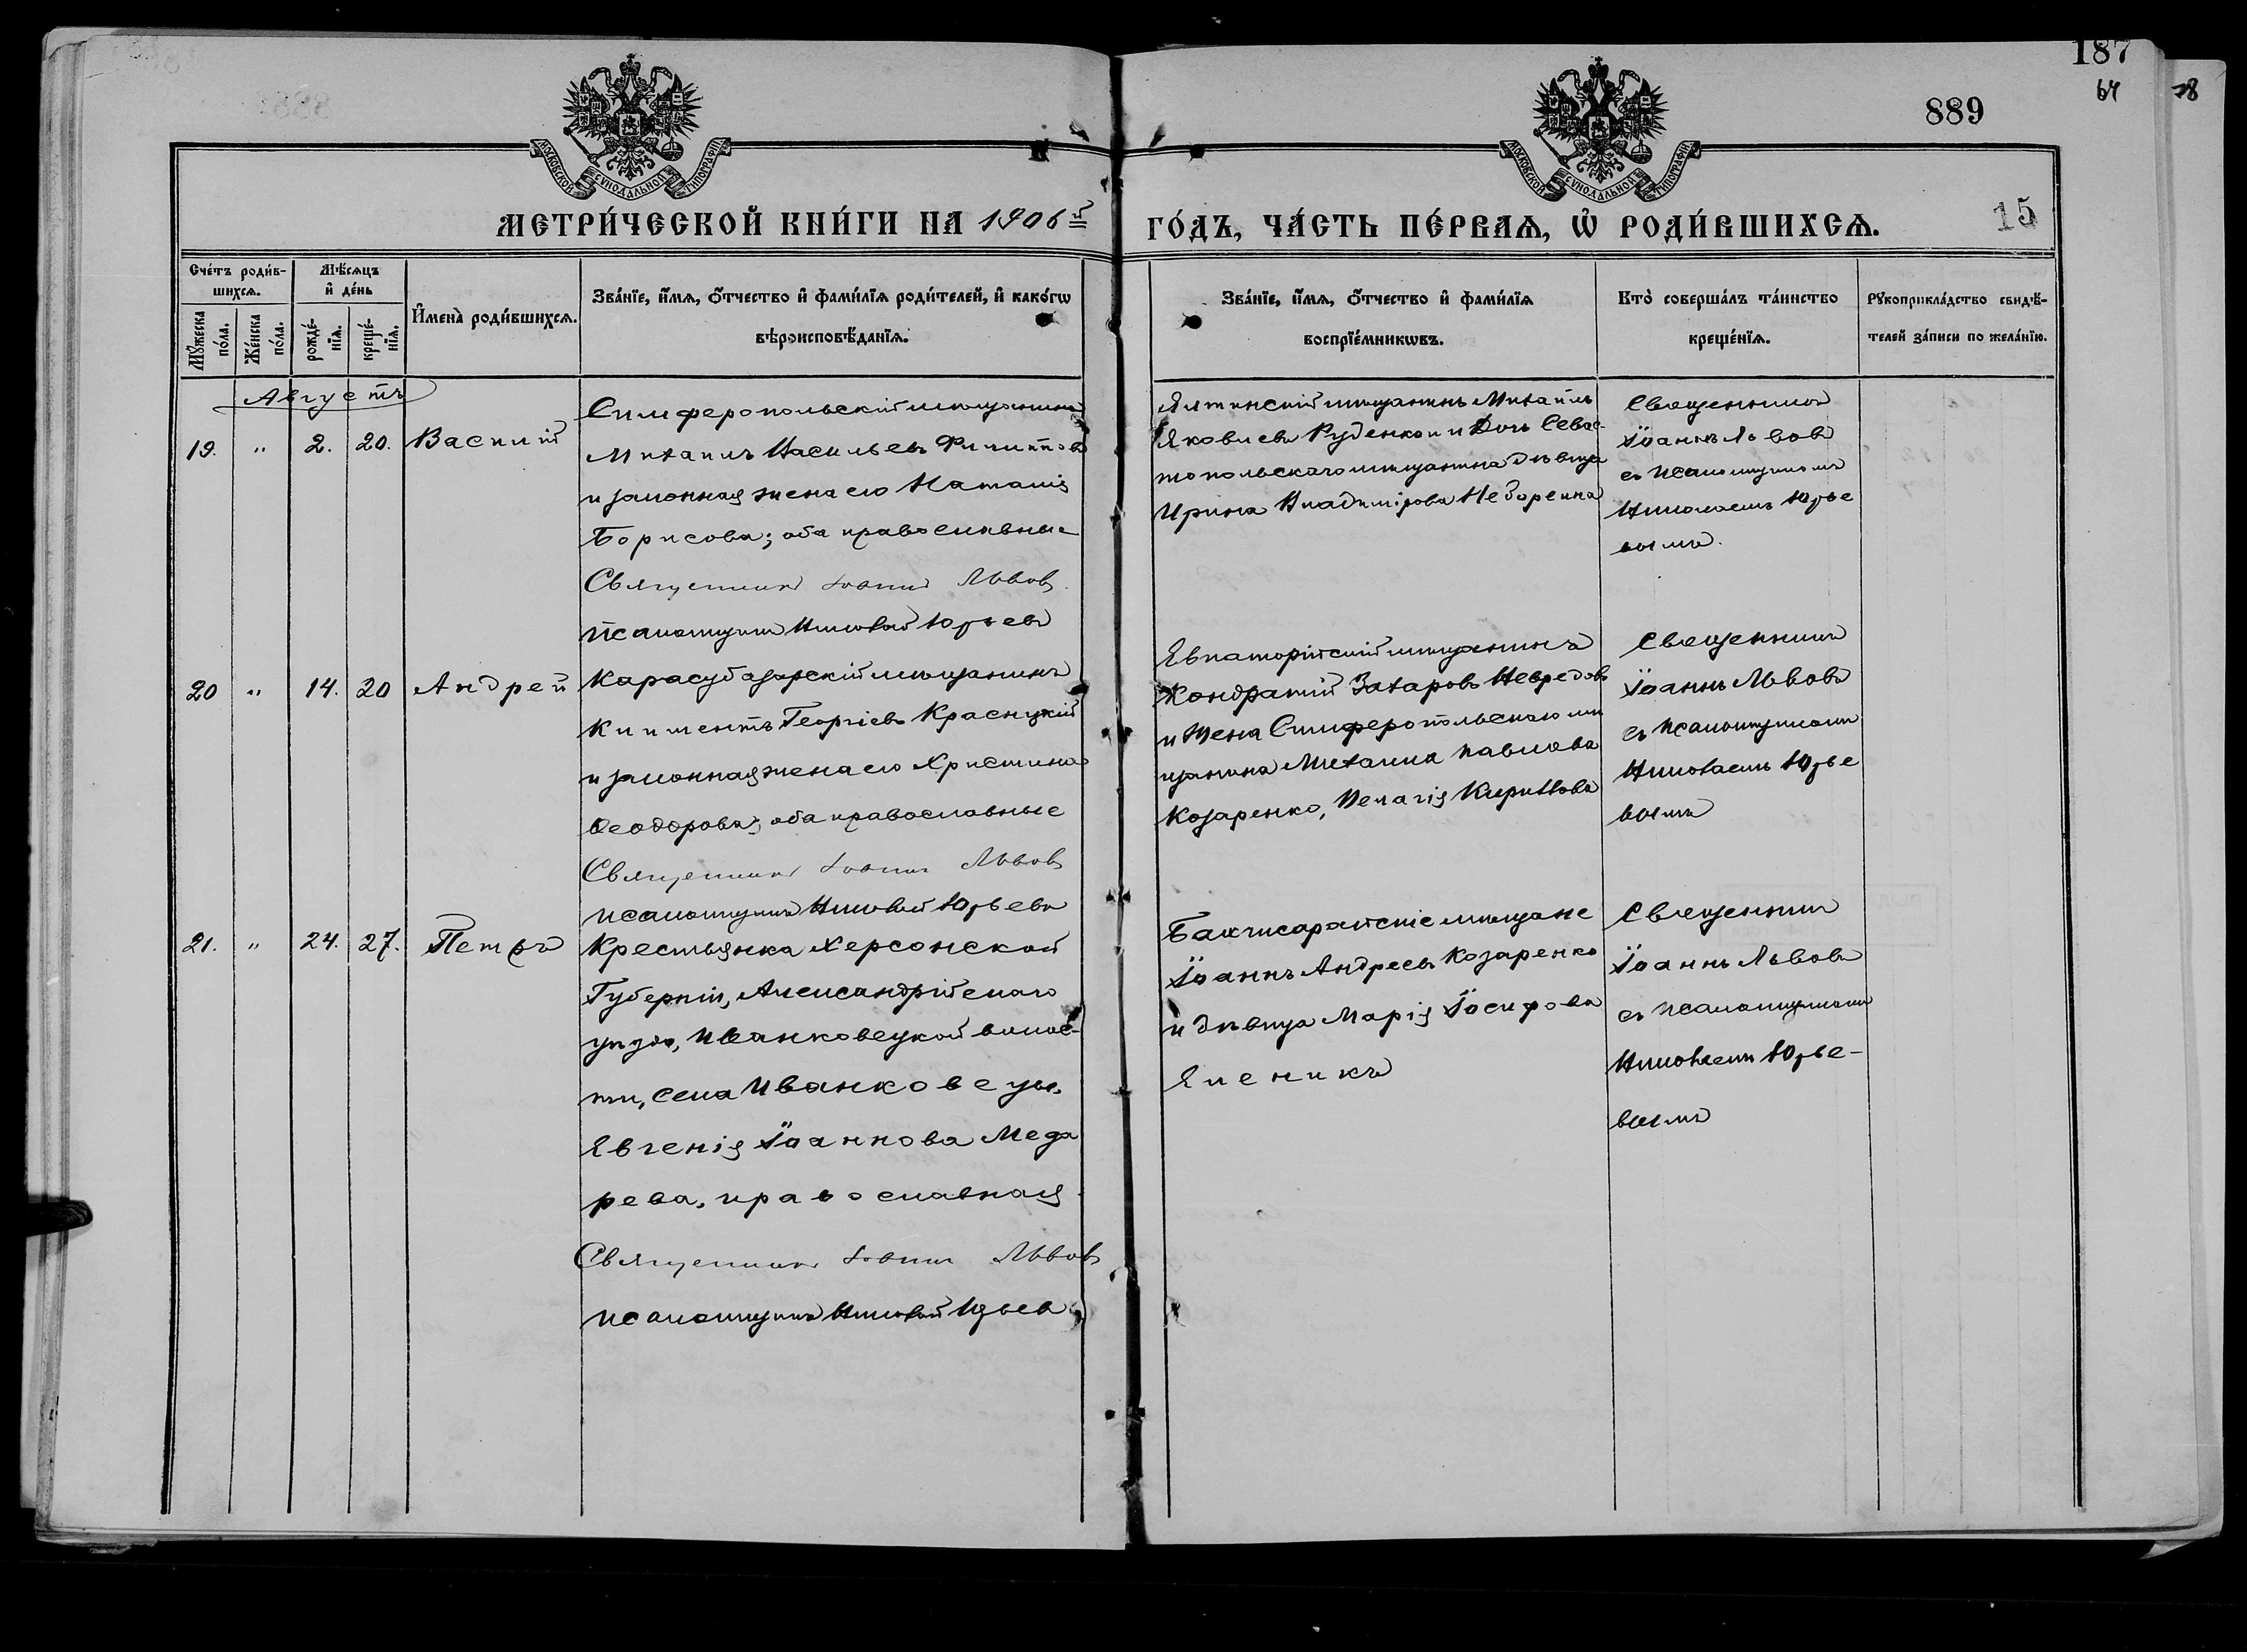 187
64
18
889
МОСКОВСКОЙ СѴНОДАЛЬНОЙ ТИПОГРАФІИ
МОСКОВСКОЙ СѴНОДАЛЬНОЙ ТИПОГРАФІИ
МЕТРИ́ЧЕСКОЙ КНИ́ГИ НА 1906й
ГО́ДЪ, ЧА́СТЬ ПЕ́РВАѦ, Ѡ҆ РОДИ́ВШИХСѦ.
15
Сче́тъ роди́в-
шихсѧ.
Мꙋ́жеска
по́ла.
Же́нска
по́ла.
Мѣ́сѧцъ
и҆ де́нь
рожде́-
нїѧ.
креще́-
нїѧ.
И҆мена̀ роди́вшихсѧ.
Зва́нїе, и҆́мѧ, ѻ҆́тчество и҆ фами́лїѧ роди́телей, и҆ како́гѡ
вѣроисповѣ́данїѧ.
Зва́нїе, и҆́мѧ, ѻ҆́тчество и҆ фами́лїѧ
воспрїе́мникѡвъ.
Кто̀ соверша́лъ та́инство
креще́нїѧ.
Рꙋкоприкла́дство свидѣ́-
телей за́писи по жела́нїю.
Августъ
19. " 2. 20. Василій
Симферопольскій мѣщанинъ
Михаилъ Васильевъ Филипповъ
и законная жена его Наталія
Борисова; оба православные
Священникъ Іоаннъ Львовъ
Псаломщикъ Николай Юрьевъ
Ялтинскій мѣщанинъ Михаилъ
Яковлевъ Руденко и Дочь Севас-
топольскаго мѣщанина дѣвица
Ирина Владимірова
Священникъ
Іоаннъ Львовъ
съ псаломщикомъ
Николаемъ Юрье
вымъ.
20 " 14. 20 Андрей
Карасубазарскій мѣщанинъ
Климентъ Георгіевъ Красицкій
и законная жена его Христина
Ѳеодорова; оба православные
Священникъ Іоаннъ Львовъ
псаломщикъ Николай Юрьевъ
Евпаторійскій мѣщанинъ
Кондратій Захаровъ Невредовъ
и жена Симферопольскаго мѣ
щанина Михаила Павлова
Козаренко, Пелагія Кириллова
Священникъ
Іоаннъ Львовъ
съ псаломщикомъ
Николаемъ Юрье
вымъ
21. " 24. 27. Петръ
Крестьянка Херсонской
Губерніи, Александрійскаго
уѣзда, Иванковецкой волос-
ти, села Иванковецъ,
Евгенія Іоаннова Меда
рева, православная.
Священникъ Іоаннъ Львовъ
псаломщикъ Николай Юрьевъ
Бахчисарайскіе мѣщане
Іоаннъ Андреевъ Козаренко
и дѣвица Марія Іосифова
Яленикъ
Священникъ
Іоаннъ Львовъ
съ псаломщикомъ
Николаемъ Юрье-
вымъ